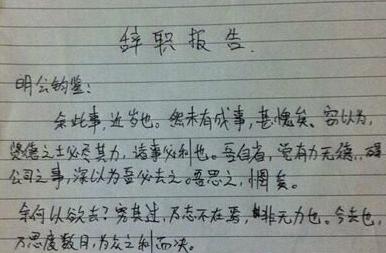 辞职报告.
明公钧鉴:
余此事,近岁也。然未有成事,甚愧矣。窃以为,
贤德之士必尽其力,诸事必利也。吾自省,觉有力无德,碍
公司之事,深以为吾必去之。吾思之,惘矣。
余何以欲去?究其过,乃志不在焉,非无力也。今去也,
乃思虑数月,为众之利而决。